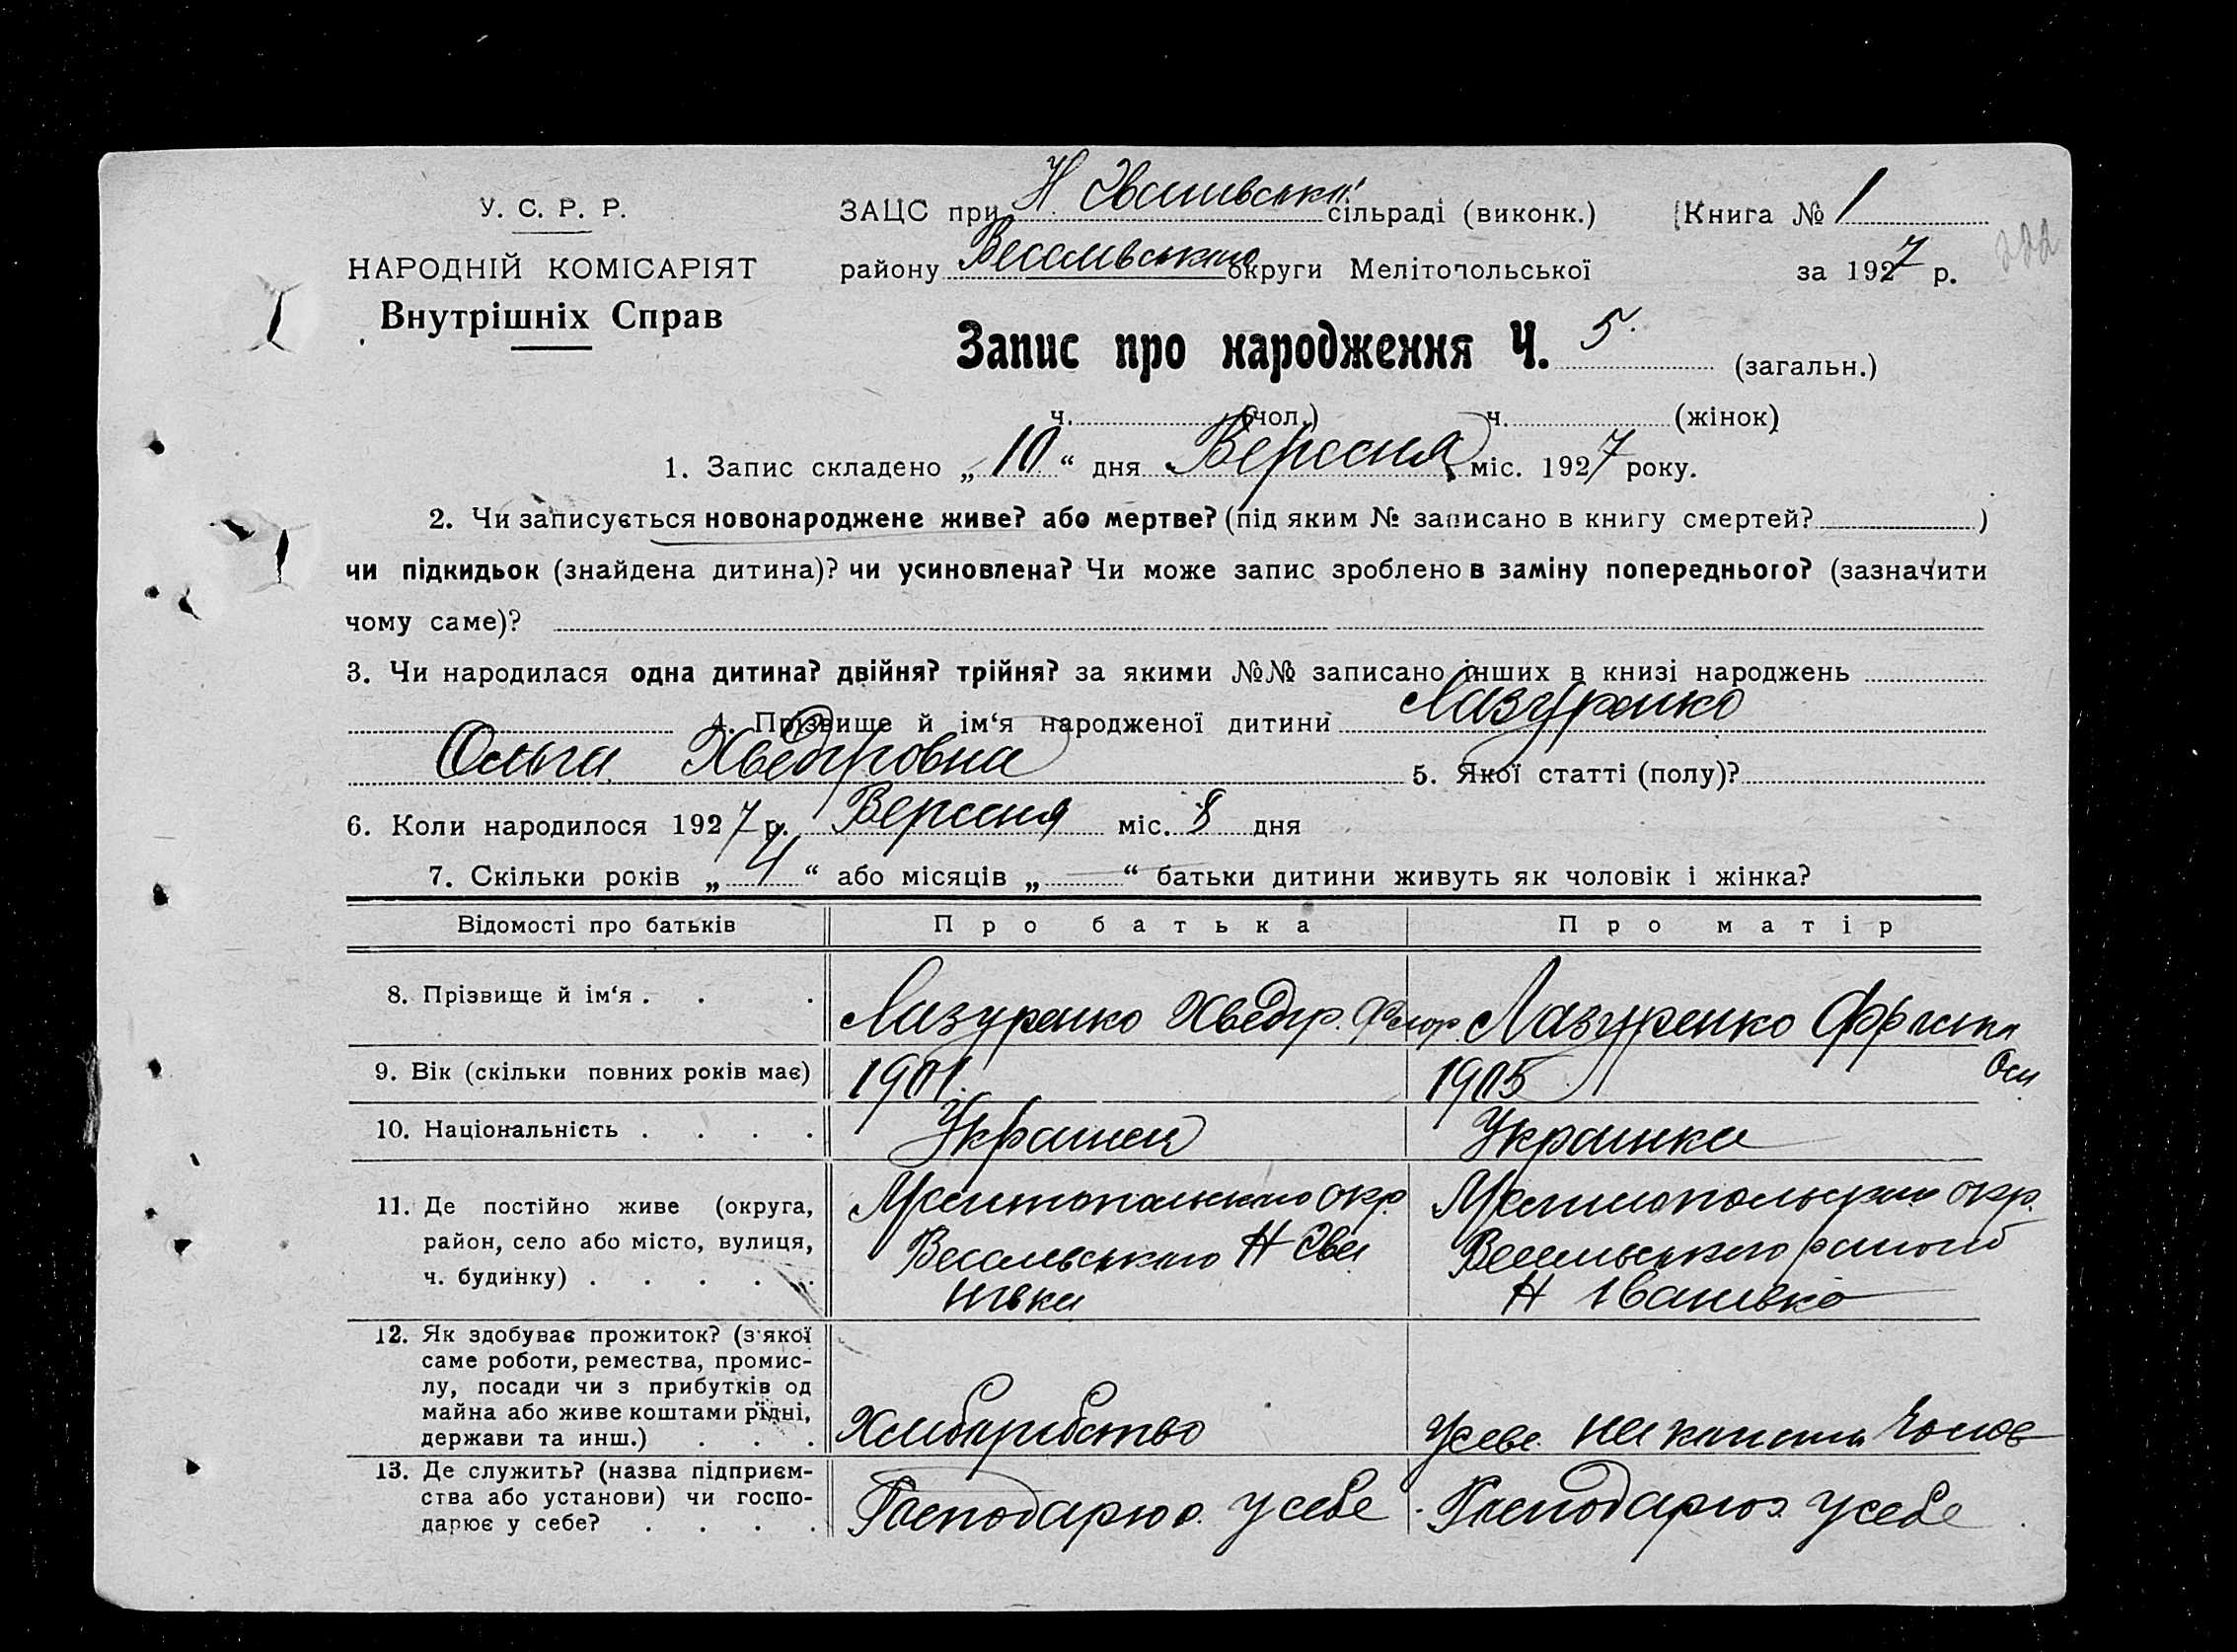 У. С. Р. Р.
НАРОДНІЙ КОМІСАРІЯТ
Внутрішніх Справ
ЗАЦС при Н Іванівській сільраді (виконк.) Книга № 1
району Веселівського округи Мелітопольської за 1927 р.
222
Запис про народження Ч. 5. (загальн.)
ч. (чол.) ч. (жінок)
1. Запис складено „ 10 “ дня Вересня міс. 1927 року.
2. Чи записується новонароджене живе? або мертве? (під яким № записано в книгу смертей? )
чи підкидьок (знайдена дитина)? чи усиновлена? Чи може запис зроблено в заміну попереднього? (зазначити
чому саме)?
3. Чи народилася одна дитина? двійня? трійня? за якими №№ записано інших в книзі народжень
4. Прізвище й ім‘я народженої дитини Лазуренко
Ольга Хведоровна 5. Якої статті (полу)?
6. Коли народилося 1927 р. Вересня міс. 8 дня
7. Скільки років „ 4 “ або місяців „ — “ батьки дитини живуть як чоловік і жінка?
Відомості про батьків Про батька Про матір
8. Прізвище й ім‘я . . . Лазуренко Хведір. Лазуренко
9. Вік (скільки повних років має) 1901. 1905 Оси
10. Національність . . . . Украинец Украинка
11. Де постійно живе (округа, Мелитопольского окр. Мелитопольского окр.
район, село або місто, вулиця, Веселивського Н Іва Веселивського району
ч. будинку) . . . . . нівка Н Іванівко
12. Як здобуває прожиток? (з якої
саме роботи, ремества, промис-
лу, посади чи з прибутків од
майна або живе коштами рідні,
держави та инш.) . . . Хлиборобство на кошти Чолов
13. Де служить? (назва підприєм-
ства або установи) чи госпо- Господарює у себе Господарює у себе
дарює у себе? . . . .